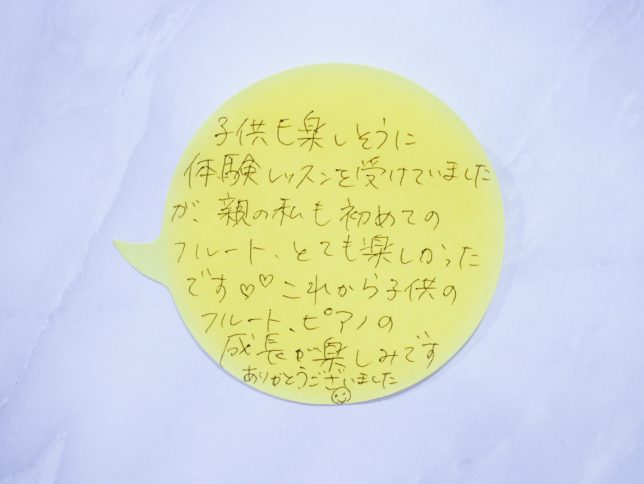 子供も楽しそうに
体験レッスンを受けていました
が、親の私も初めての
フルート、とても楽しかった
です♡♡これから子供の
フルート、ピアノの
成長が楽しみです
ありがとうございました